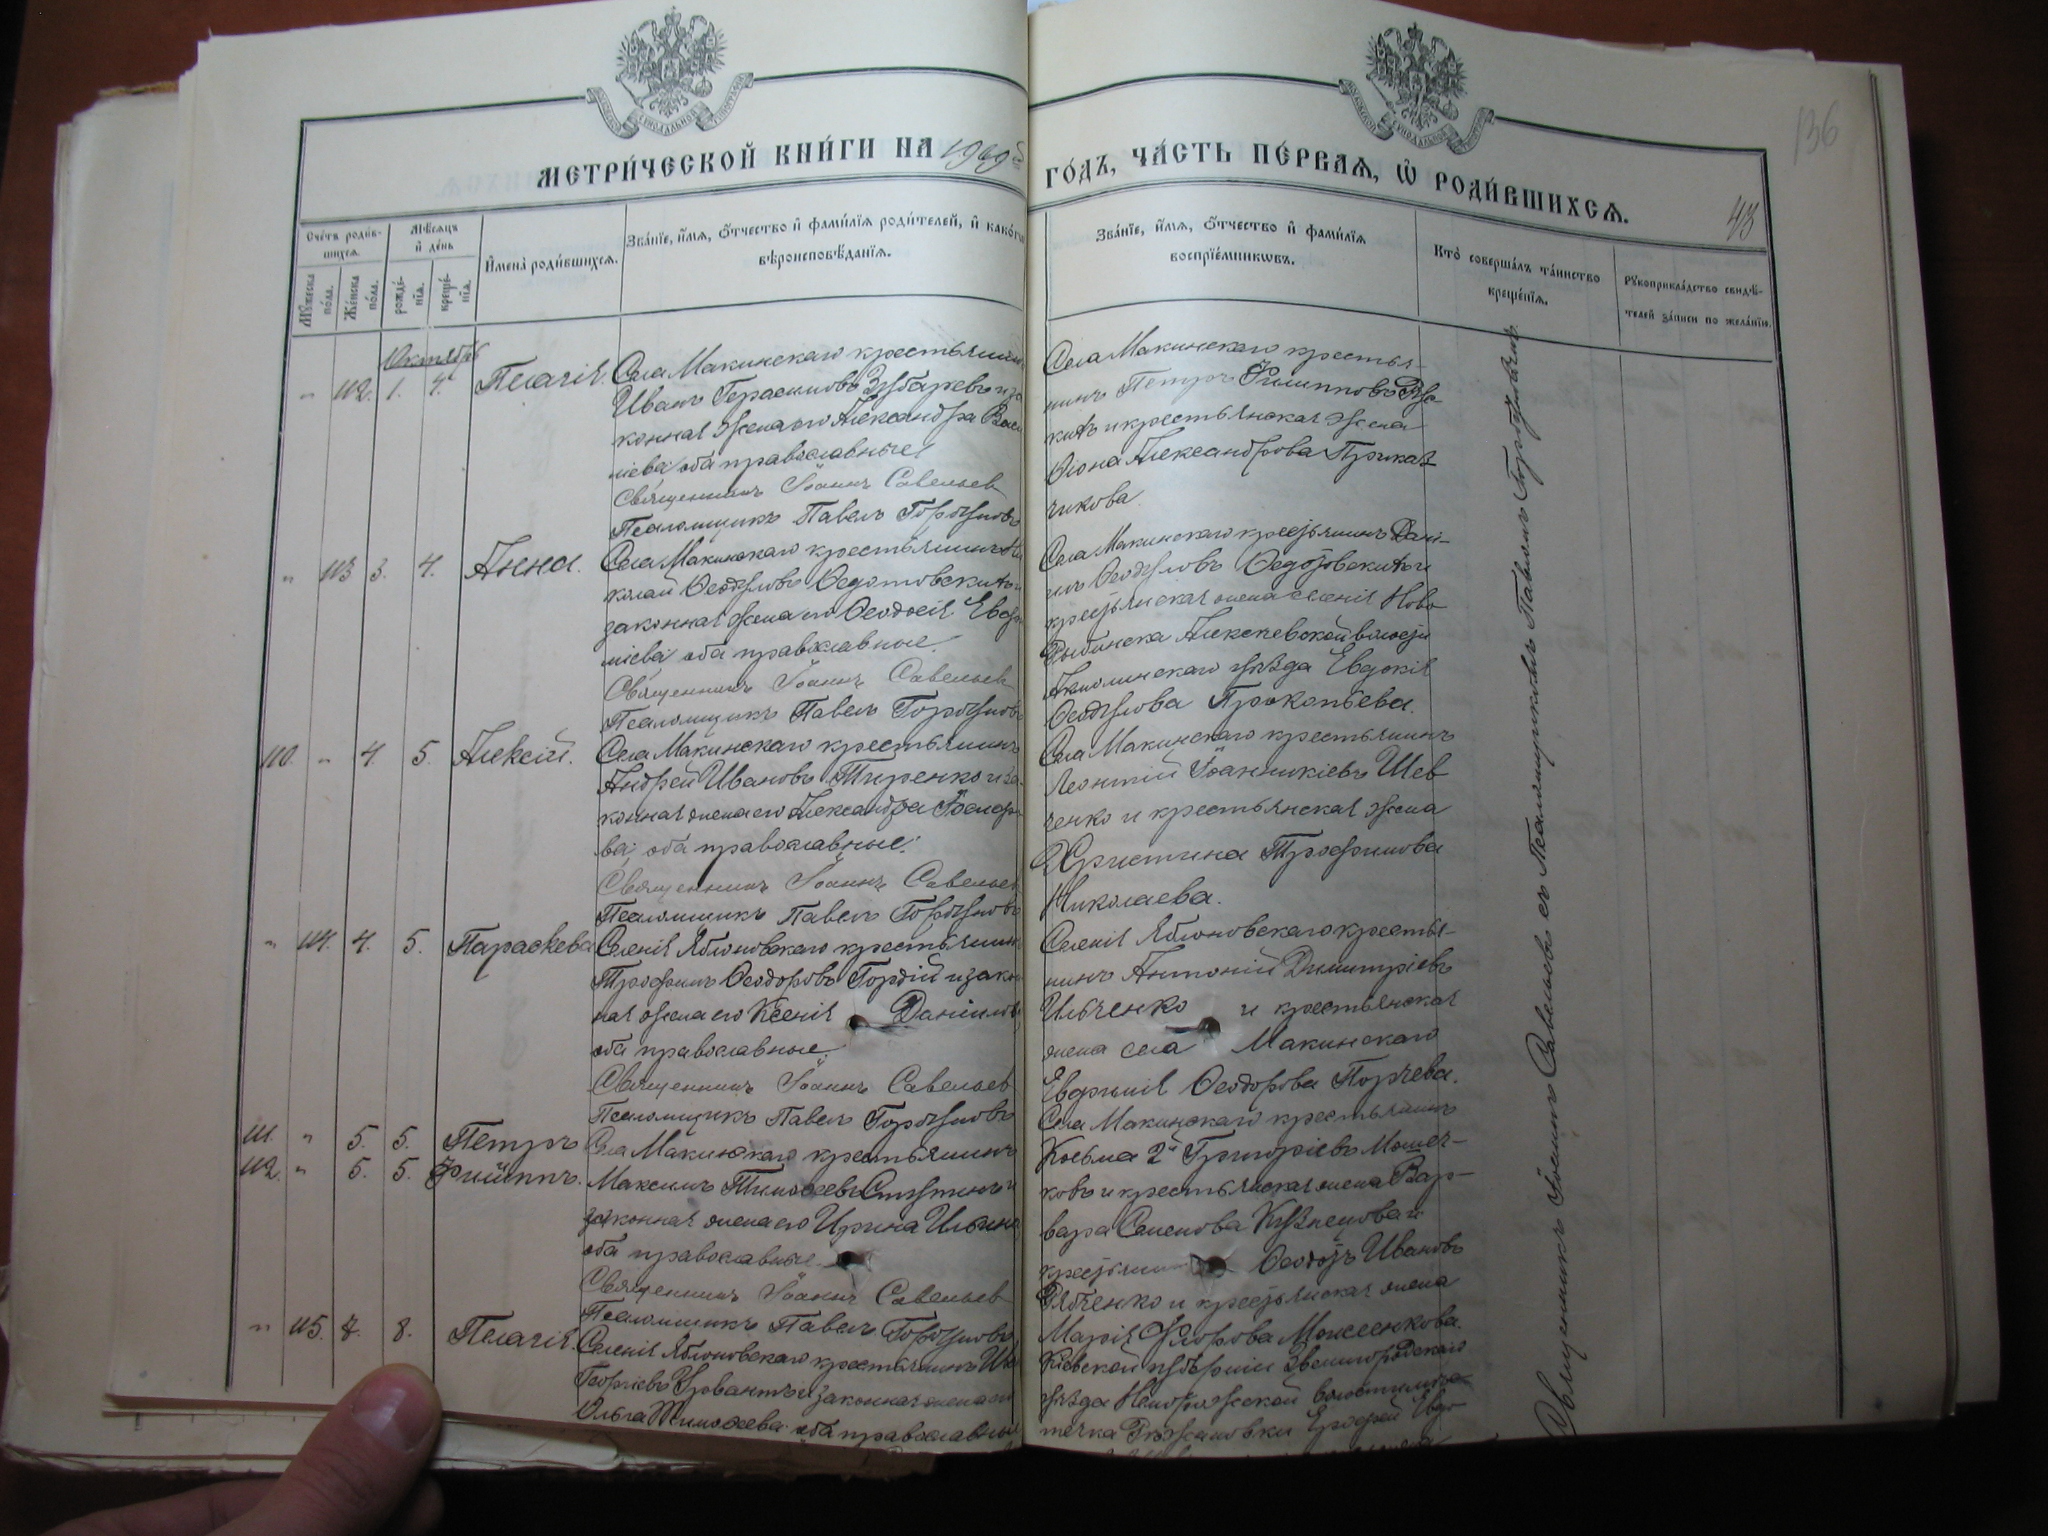 МЕТРИ́ЧЕСКОЙ КНИ́ГИ НА 1909й
ГО́ДЪ, ЧА́СТЬ ПЕ́РВАЯ, Ѡ РОДИ́ВШИХСЯ.
136
43
Сче́тъ роди́в-
шихся.
Мѣ́сяцъ
и҆ де́нь
И҆мена̀ роди́вшихся.
Зва́нїе, и҆́мя, ѻ҆́тчество и҆ фами́лїя роди́телей, и҆ како́гѡ
вѣроисповѣ́данїя.
Му́жеска
по́ла.
Же́нска
по́ла.
рожде́-
нїя.
креще́-
нїя.
Зва́нїе, и҆́мя, ѻ҆́тчество и҆ фами́лїя
воспрїе́мникѡвъ.
Кто̀ соверша́лъ та́инство
креще́нїя.
Рукоприкла́дство свидѣ́-
телей за́писи по жела́нїю.
Октябрь
" 112. 1. 4. Пелагія.
Села Макинскаго крестьянинъ
Иванъ Герасимовъ Зубаревъ и за
конная жена его Александра Васи
ліева, оба православные
Священникъ Іоаннъ Савельев
Псаломщикъ Павелъ Горбуновъ
Села Макинскаго крестья-
нинъ Петръ Филипповъ
и крестьянская жена
Александрова Приказ-
чикова.
" 113 3. 4. Анна.
Села Макинскаго крестьянинъ Ни
колай Ѳеодуловъ Ѳедотовскихъ и
законная жена его Ѳеодосія Евфи
міева, оба православные.
Священникъ Іоаннъ Савельев
Псаломщикъ Павелъ Горбуновъ
Села Макинскаго крестьянинъ Дані-
илъ Ѳеодуловъ Ѳедотовскихъ и
крестьянская жена селенія Ново
Рыбинска Алексеевской волости
Акмолинскаго уѣзда Евдокія
Ѳеодулова Прокопьева.
110. " 4. 5. Алексій.
Села Макинскаго крестьянинъ
Андрей Ивановъ Тиренко и за-
конная жена его Александра
ва, оба православные.
Священникъ Іоаннъ Савельев
Псаломщикъ Павелъ Горбуновъ
Села Макинскаго крестьянинъ
Леонтій Іоанникіевъ Шев
ченко и крестьянская жена
Христина Трофимова
Николаева.
" 114. 4. 5. Параскева
Селенія Яблоновскаго крестьянинъ
Трофимъ Ѳеодоровъ Гордій и закон
ная жена его Ксенія Даніилова
оба православные.
Священникъ Іоаннъ Савельев
Псаломщикъ Павелъ Горбуновъ
Селенія Яблоновскаго крестья-
нинъ Антоній Димитріевъ
Ильченко и крестьянская
жена села Макинскаго
Евфимія Ѳеодорова Порчева.
111. " 5. 5. Петръ
112. " 5. 5. Филиппъ.
Села Макинскаго крестьянинъ
Максимъ Тимоѳеевъ и
законная жена его Ирина Ильина
оба православные.
Священникъ Іоаннъ Савельев
Псаломщикъ Павелъ Горбуновъ
Села Макинскаго крестьянинъ
Косьма 2й Григоріевъ Мошеч-
ковъ и крестьянская жена Вар-
вара Семенова Кузнецова и
крестьянинъ Ѳеодоръ Ивановъ
Рябченко и крестьянская жена
Марія Флорова Моисеенкова.
" 115. 7. 8. Пелагія.
Селенія Яблоновскаго крестьянинъ
Георгіевъ и законная жена его
Ольга Тимоѳеева, оба православные
Кіевской губерніи Звенигородскаго
уѣзда волости
течка Рыжановки Евдо
Священникъ Іоаннъ Савельевъ съ Псаломщикомъ Павломъ Горбуновымъ.